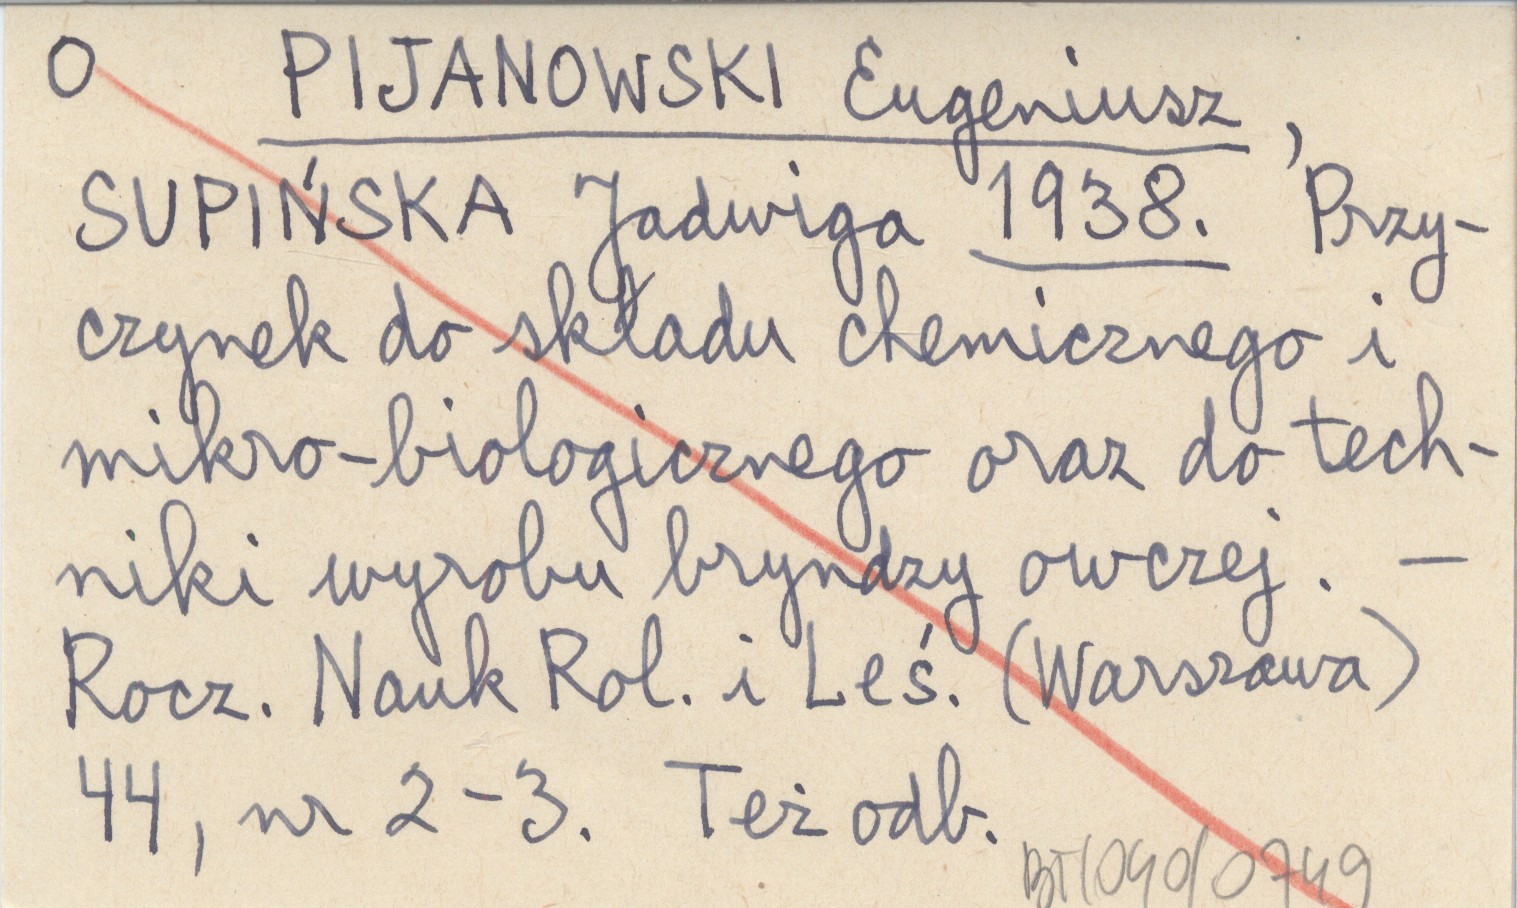 O PIJANOWSKI Eugeniusz,
SUPIŃSKA Jadwiga 1938. Przy-
czynek do składu chemicznego i
mikro-biologicznego oraz do tech-
niki wyrobu bryndzy owczej. —
Rocz. Nauk Rol. i Leś. (Warszawa)
44, nr 2-3. Też odb.
BT/040/0749